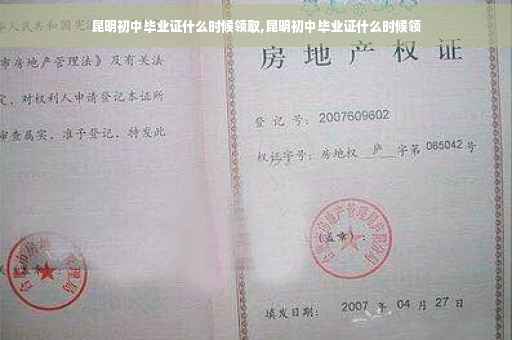 昆明初中毕业证什么时候领取,昆明初中毕业证什么时候领
华人民共和国宪
市房地产管理法》及有关法
定，对权利人申请登记本证所
审查属实，准予登记，特发此
房 地 产 权 证
登 记 号：2007609602
权证字号：房地权 庐 字第 065042 号
（盖章）：
填发日期： 2007 年 04 月 27 日